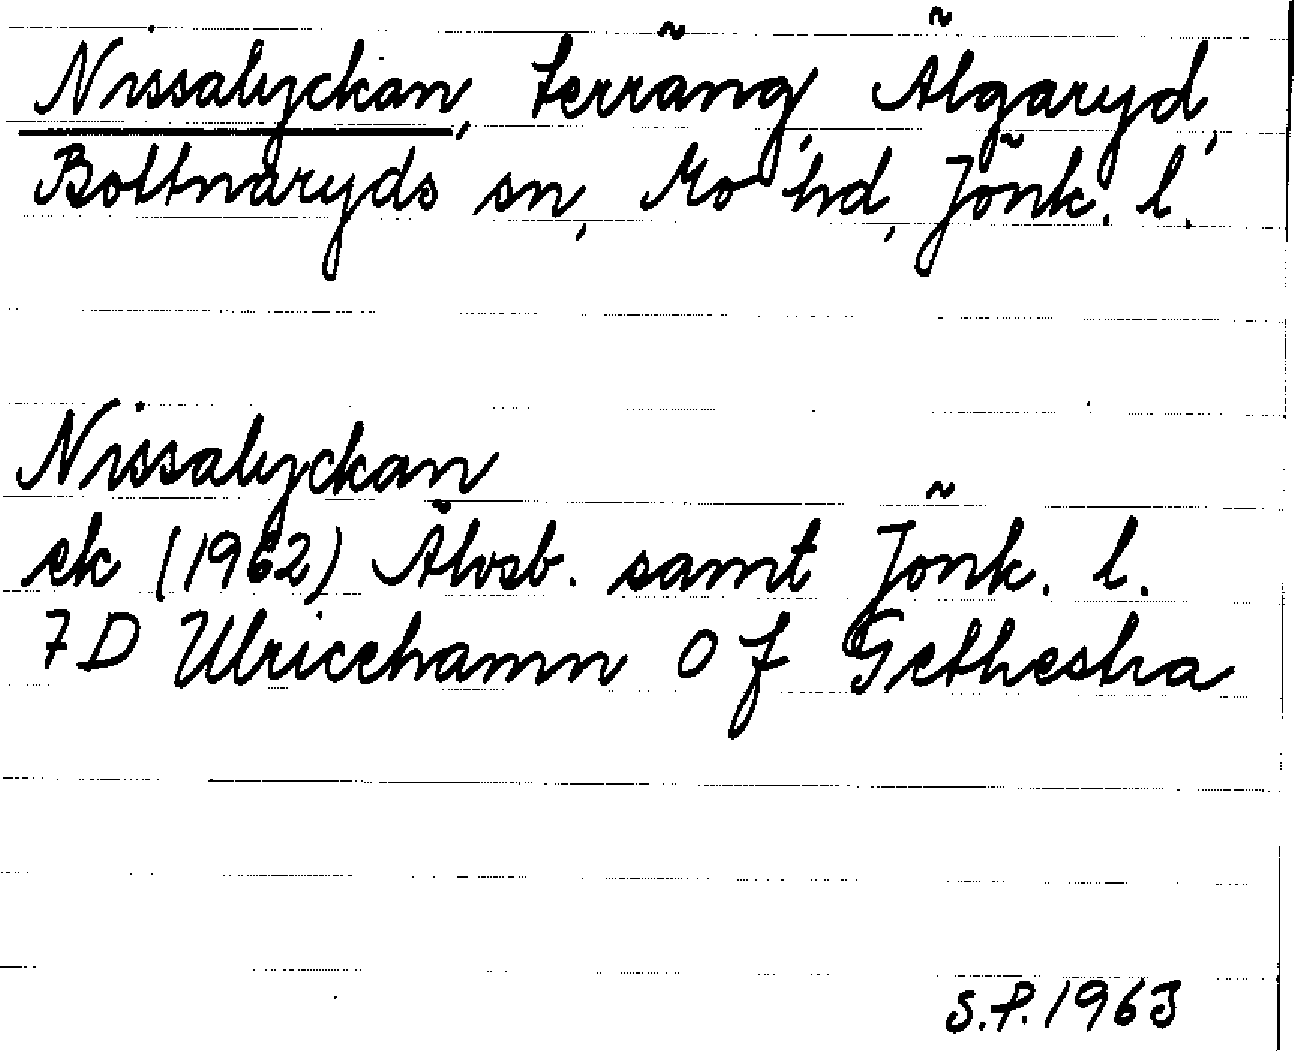 Nissalyckan, terräng, Älgaryd,
Bottnaryds sn, Mo hd, Jönk. l.
Nissalyckan
ek (1962) Älvsb. samt Jönk. l.
7D Ulricehamn 0 f Gethestra
S.P. 1963